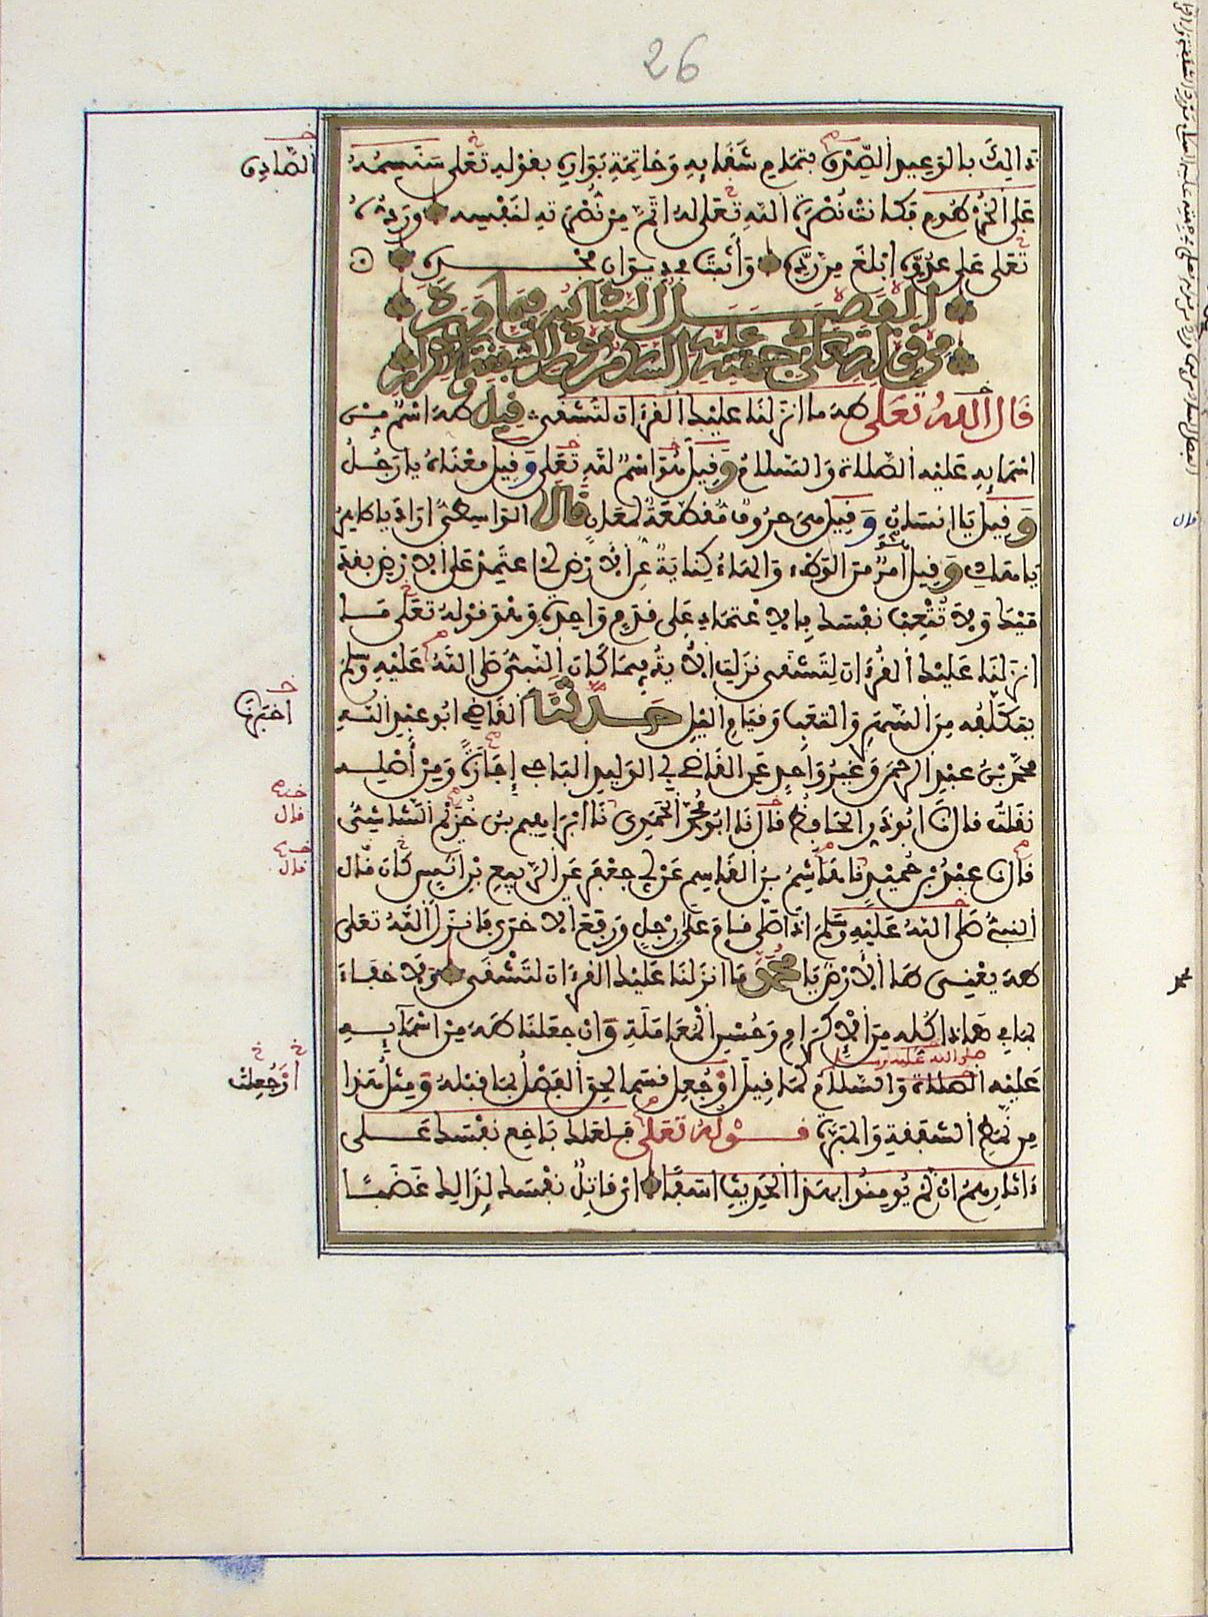 26
ذالك بالوعيد الصدق بتمام شقائه وخاتمة بواره بقوله تعلى سنسمه
على الخرطوم فكانت نصرة الله تعلى له اتم من نصرته لنفسه ورده
تعلى على عدوه ابلغ من رده واثبت في ديوان مجده
الفصل السادس فيما ورد
من قوله تعلى في جهته عليه السلام مورد الشفقة والاكرام
قال الله تعلى طه ما انزلنا عليك القرءان لتشقى قيل طه اسم من
اسمايه عليه الصلاة والسلام وقيل هو اسم لله تعلى وقيل معناه يا رجل
وقيل يا انسان وقيل هي حروف مقطعة لمعان قال الواسطي اراد يا طاهر
يا هادي وقيل هو امر من الوطء والهاء كناية عن الارض اي اعتمد على الارض بقد
ميك ولا تتعب نفسك بالاعتماد على قدم واحدة وهو قوله تعلى ما
انزلنا عليك القرءان لتشقى نزلت الاية فيما كان النبي صلى الله عليه وسلم
يتكلفه من السهر والتعب وقيام الليل حدثنا القاضي ابو عبد الله
محمد بن عبد الرحمن وغير واحد عن القاضي ابي الوليد الباجي إجازة ومن أصله
نقلت قال نا ابو ذر الحافظ قال نا ابو محمد الحموي نا ابراهيم بن خزيم الشاشي
قال نا عبد بن حميد نا هاشم بن القاسم عن ابي جعفر عن الربيع بن انس كان قال
النبي صلى الله عليه وسلم اذا صلى قام على رجل ورفع الاخرى فانزل الله تعلى
طه يعني طإ الارض يا محمد ما انزلنا عليك القرءان لتشقى ولا خفاء
بما في هاذا كله من الاكرام وحسن المعاملة وان جعلنا طه من اسمايه
صلى الله عليه وسلم
عليه الصلاة والسلام كما قيل او جعل قسما لحق الفصل بما قبله ومثل هذا
من نمط الشفقة والمبرة قوله تعلى فلعلك باخع نفسك على
ءاثارهم ان لم يومنوا بهذا الحديث اسفا اي قاتل نفسك لذالك غضبا
الصادق
اخبرنا
قال
قال
او جعلت
قال
محمد